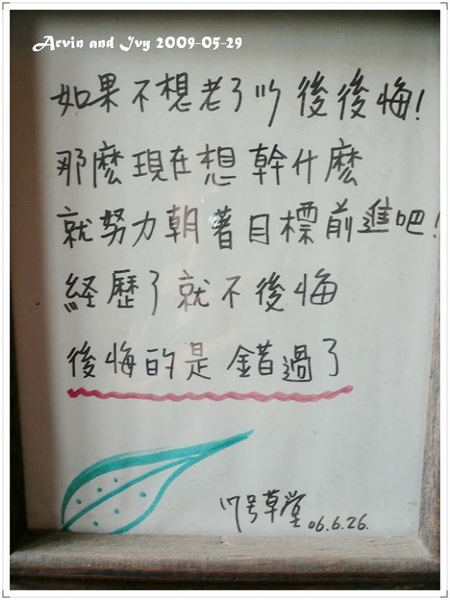 Arvin and Ivy 2009-05-29
如果不想老了以後後悔!
那麼現在想幹什麼
就努力朝著目標前進吧!
経歷了就不後悔
後悔的是錯過了
号草堂 06.6.26.